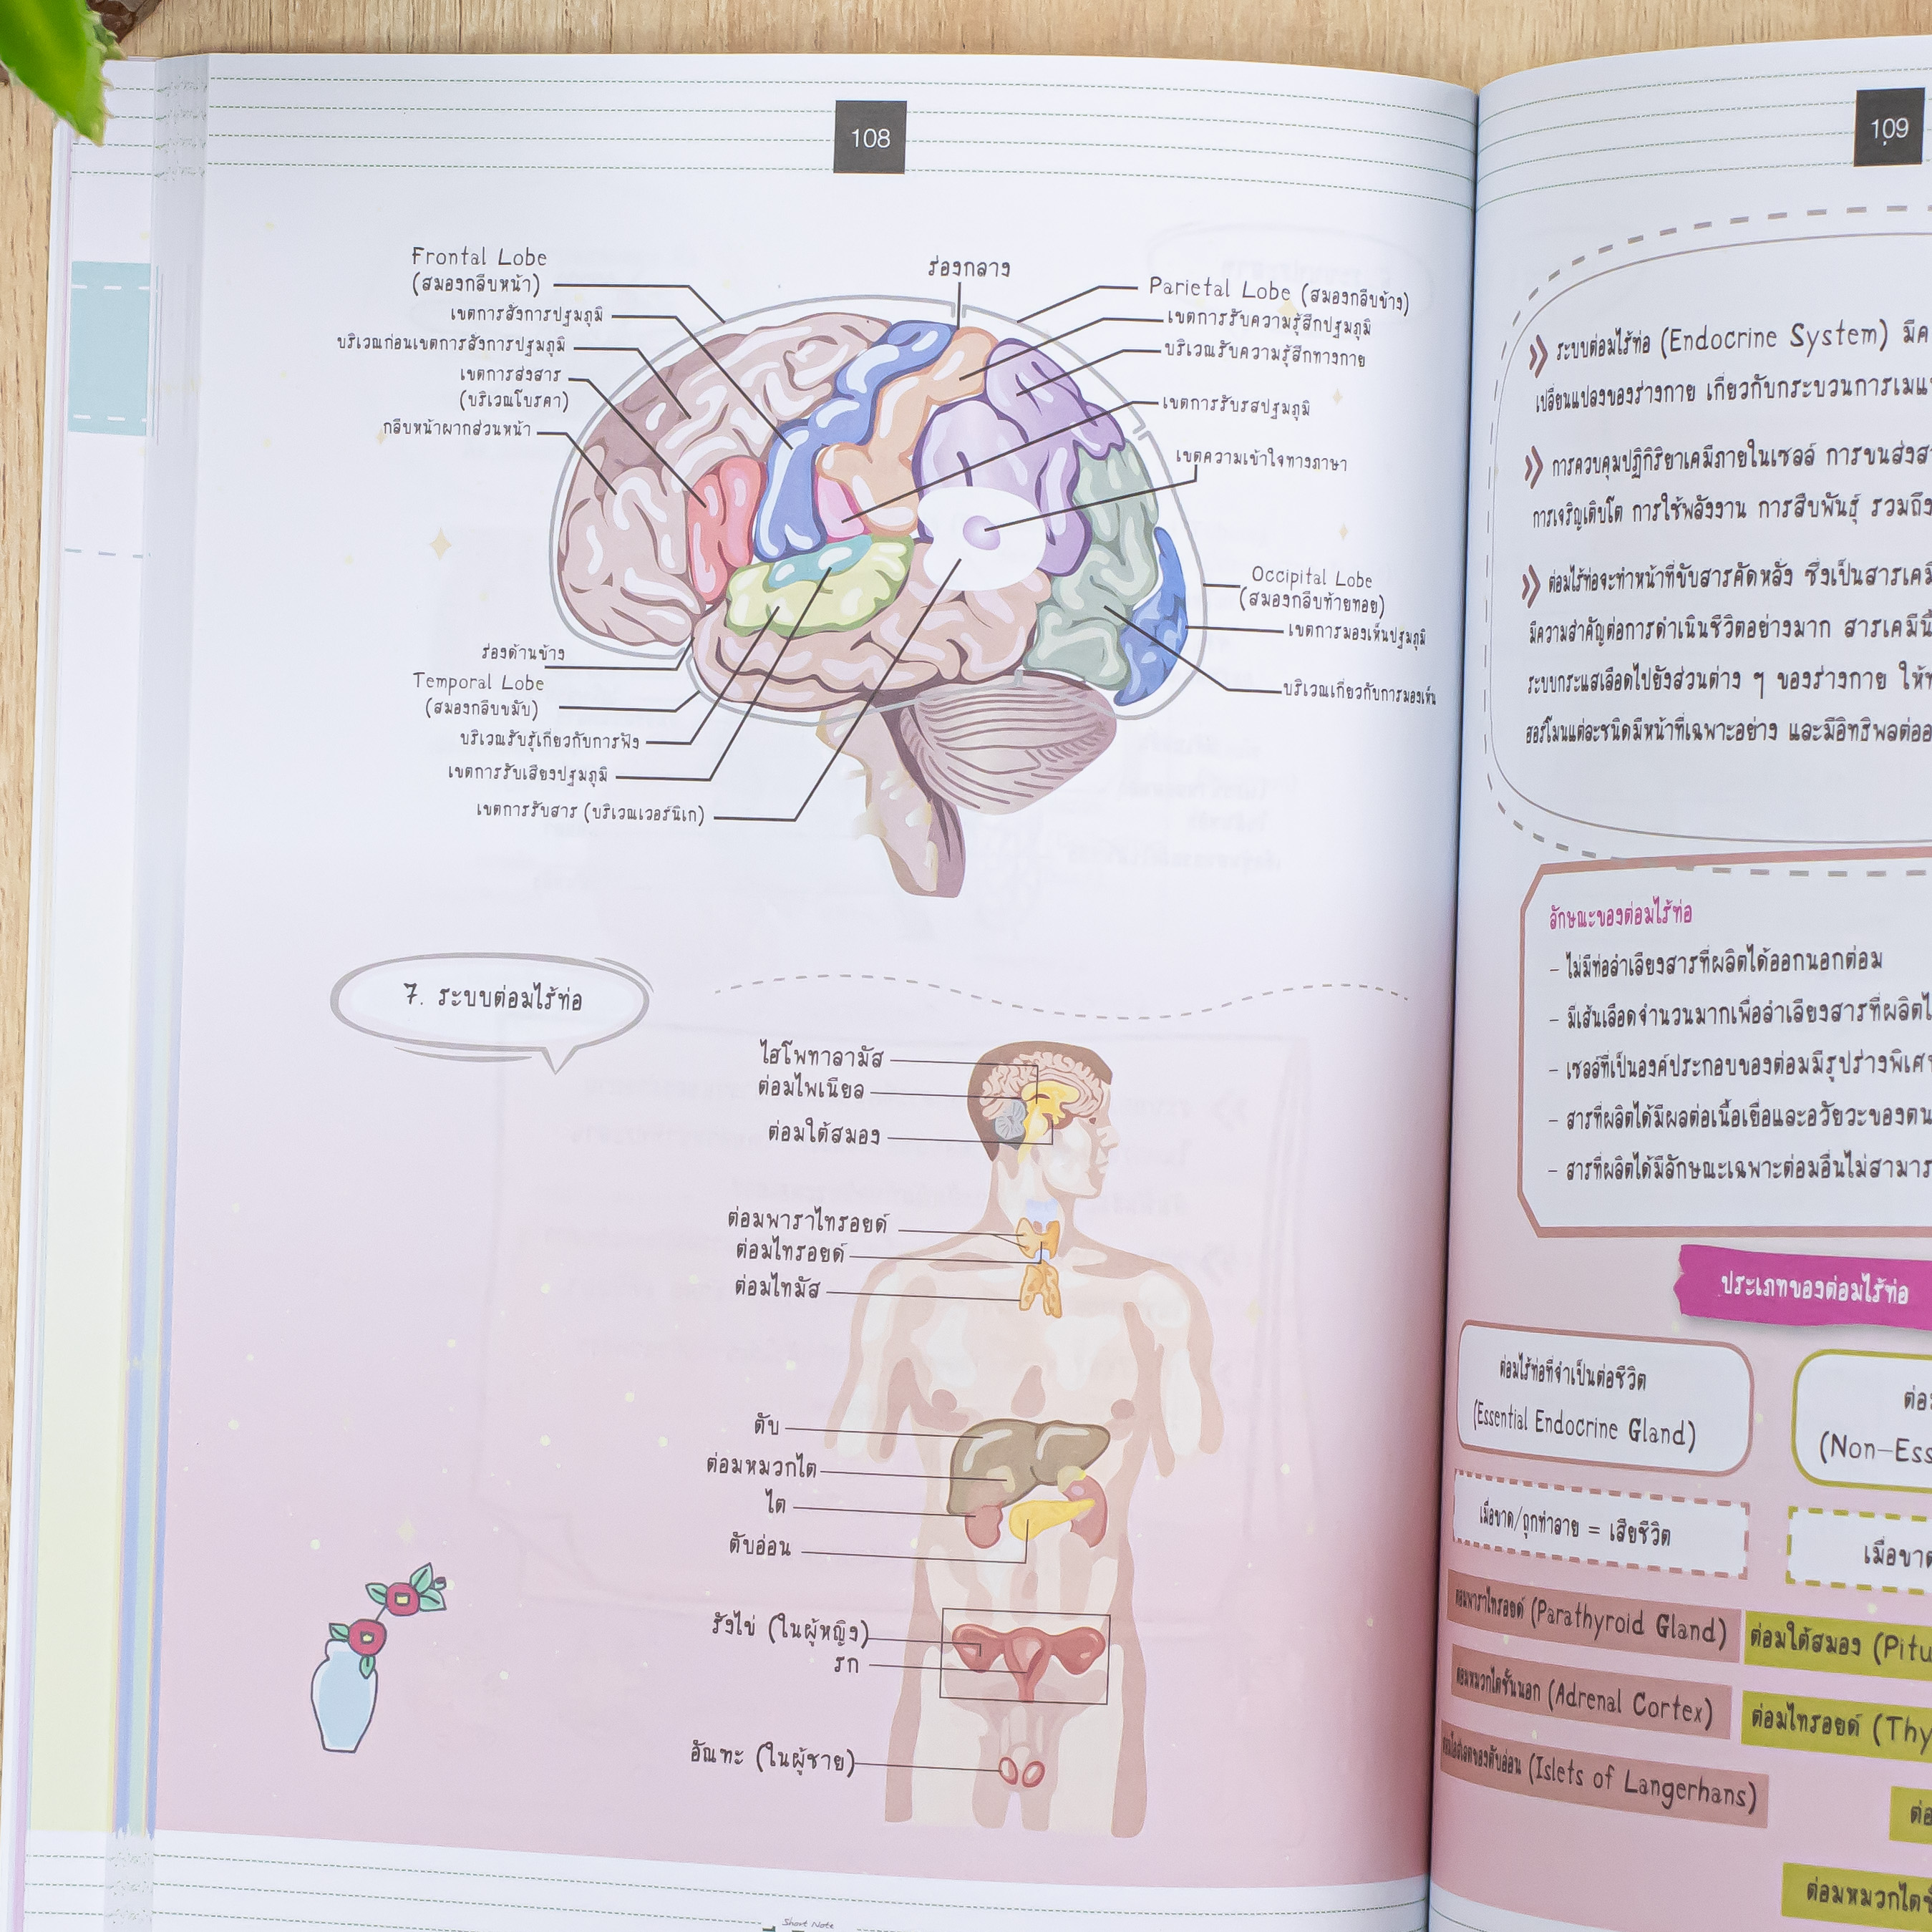 108
Frontal Lobe
(สมองกลีบหน้า)
เขตการสั่งการปฐมภูมิ
บริเวณก่อนเขตการสั่งการปฐมภูมิ
เขตการส่งสาร
(บริเวณโบรคา)
กลีบหน้าผากส่วนหน้า
ร่องกลาง
Parietal Lobe (สมองกลีบข้าง)
เขตการรับความรู้สึกปฐมภูมิ
บริเวณรับความรู้สึกทางกาย
เขตการรับรสปฐมภูมิ
เขตความเข้าใจทางภาษา
Occipital Lobe
(สมองกลีบท้ายทอย)
เขตการมองเห็นปฐมภูมิ
บริเวณเกี่ยวกับการมองเห็น
ร่องด้านข้าง
Temporal Lobe
(สมองกลีบขมับ)
บริเวณรับรู้เกี่ยวกับการฟัง
เขตการรับเสียงปฐมภูมิ
เขตการรับสาร (บริเวณเวอร์นิเก)
7. ระบบต่อมไร้ท่อ
ไฮโพทาลามัส
ต่อมไพเนียล
ต่อมใต้สมอง
ต่อมพาราไทรอยด์
ต่อมไทรอยด์
ต่อมไทมัส
ตับ
ต่อมหมวกไต
ไต
ตับอ่อน
รังไข่ (ในผู้หญิง)
รก
อัณฑะ (ในผู้ชาย)
Short Note
109
ระบบต่อมไร้ท่อ (Endocrine System) มีค
เปลี่ยนแปลงของร่างกาย เกี่ยวกับกระบวนการเมแท
การควบคุมปฏิกิริยาเคมีภายในเซลล์ การขนส่งสา
การเจริญเติบโต การใช้พลังงาน การสืบพันธุ์ รวมถึง
ต่อมไร้ท่อจะทำหน้าที่ขับสารคัดหลั่ง ซึ่งเป็นสารเคมี
มีความสำคัญต่อการดำเนินชีวิตอย่างมาก สารเคมีนี้
ระบบกระแสเลือดไปยังส่วนต่าง ๆ ของร่างกาย ให้ท
ฮอร์โมนแต่ละชนิดมีหน้าที่เฉพาะอย่าง และมีอิทธิพลต่ออ
ลักษณะของต่อมไร้ท่อ
- ไม่มีท่อลำเลียงสารที่ผลิตได้ออกนอกต่อม
- มีเส้นเลือดจำนวนมากเพื่อลำเลียงสารที่ผลิตไ
- เซลล์ที่เป็นองค์ประกอบของต่อมมีรูปร่างพิเศ
- สารที่ผลิตได้มีผลต่อเนื้อเยื่อและอวัยวะของตน
- สารที่ผลิตได้มีลักษณะเฉพาะต่อมอื่นไม่สามาร
ประเภทของต่อมไร้ท่อ
ต่อมไร้ท่อที่จำเป็นต่อชีวิต
(Essential Endocrine Gland)
เมื่อขาด/ถูกทำลาย = เสียชีวิต
ต่อมพาราไทรอยด์ (Parathyroid Gland)
ต่อมหมวกไตชั้นนอก (Adrenal Cortex)
(Islets of Langerhans)
ต่อ
(Non-Ess
เมื่อขาด
ต่อมใต้สมอง (Pitu
ต่อมไทรอยด์ (Thy
ต่อ
ต่อมหมวกไตชั